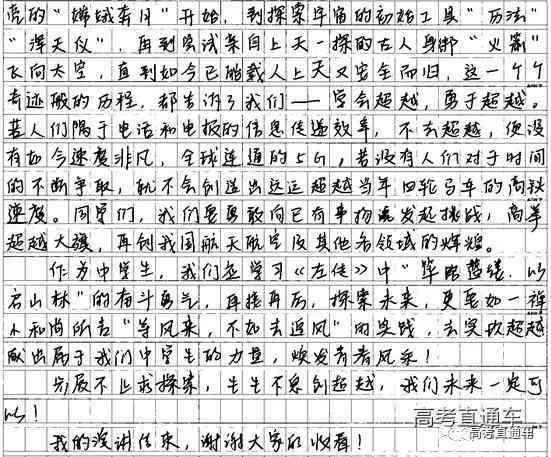 亮的“嫦娥奔月”开始，到探索宇宙的初始工具“历法”
“浑天仪”，再到尝试亲自上天一探的古人身绑“火箭”
飞向太空，直到如今已能载人上天又安全而归，这一个个
奇迹般的历程，都告诉了我们——学会超越，勇于超越。
若人们隅于电话和电报的信息传递效率，不去超越，便没
有如今速度非凡，全球连通的5G，若没有人们对于时间
的不断争取，就不会创造出远远超越当年四轮马车的高铁
速度。同学们，我们要勇敢向已有事物发起挑战，高举
超越大旗，再创我国航天航空及其他各领域的辉煌。
作为中学生，我们应学习《左传》中“筚路蓝缕，以
启山林”的奋斗勇气，再接再厉，探索未来，更要如一禅
小和尚所言“等风来，不如去追风”的实践，去实现超越
献出属于我们中学生的力量，焕发青春风采！
发展不止求探索，生生不息创超越，我们未来一定可
以！
我的演讲结束，谢谢大家的收看！
高考直通车
高考直通车